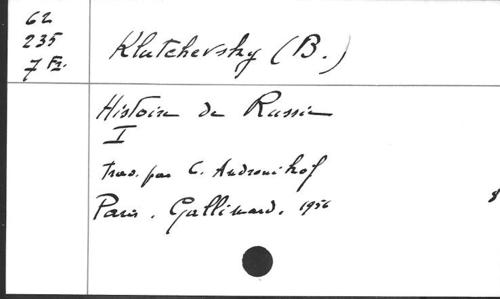 62
235
7 Fr.
Klutchevsky (B.)
Histoire de Russie
I
Trad. par C. Andronikof
Paris. Gallimard. 1956
8